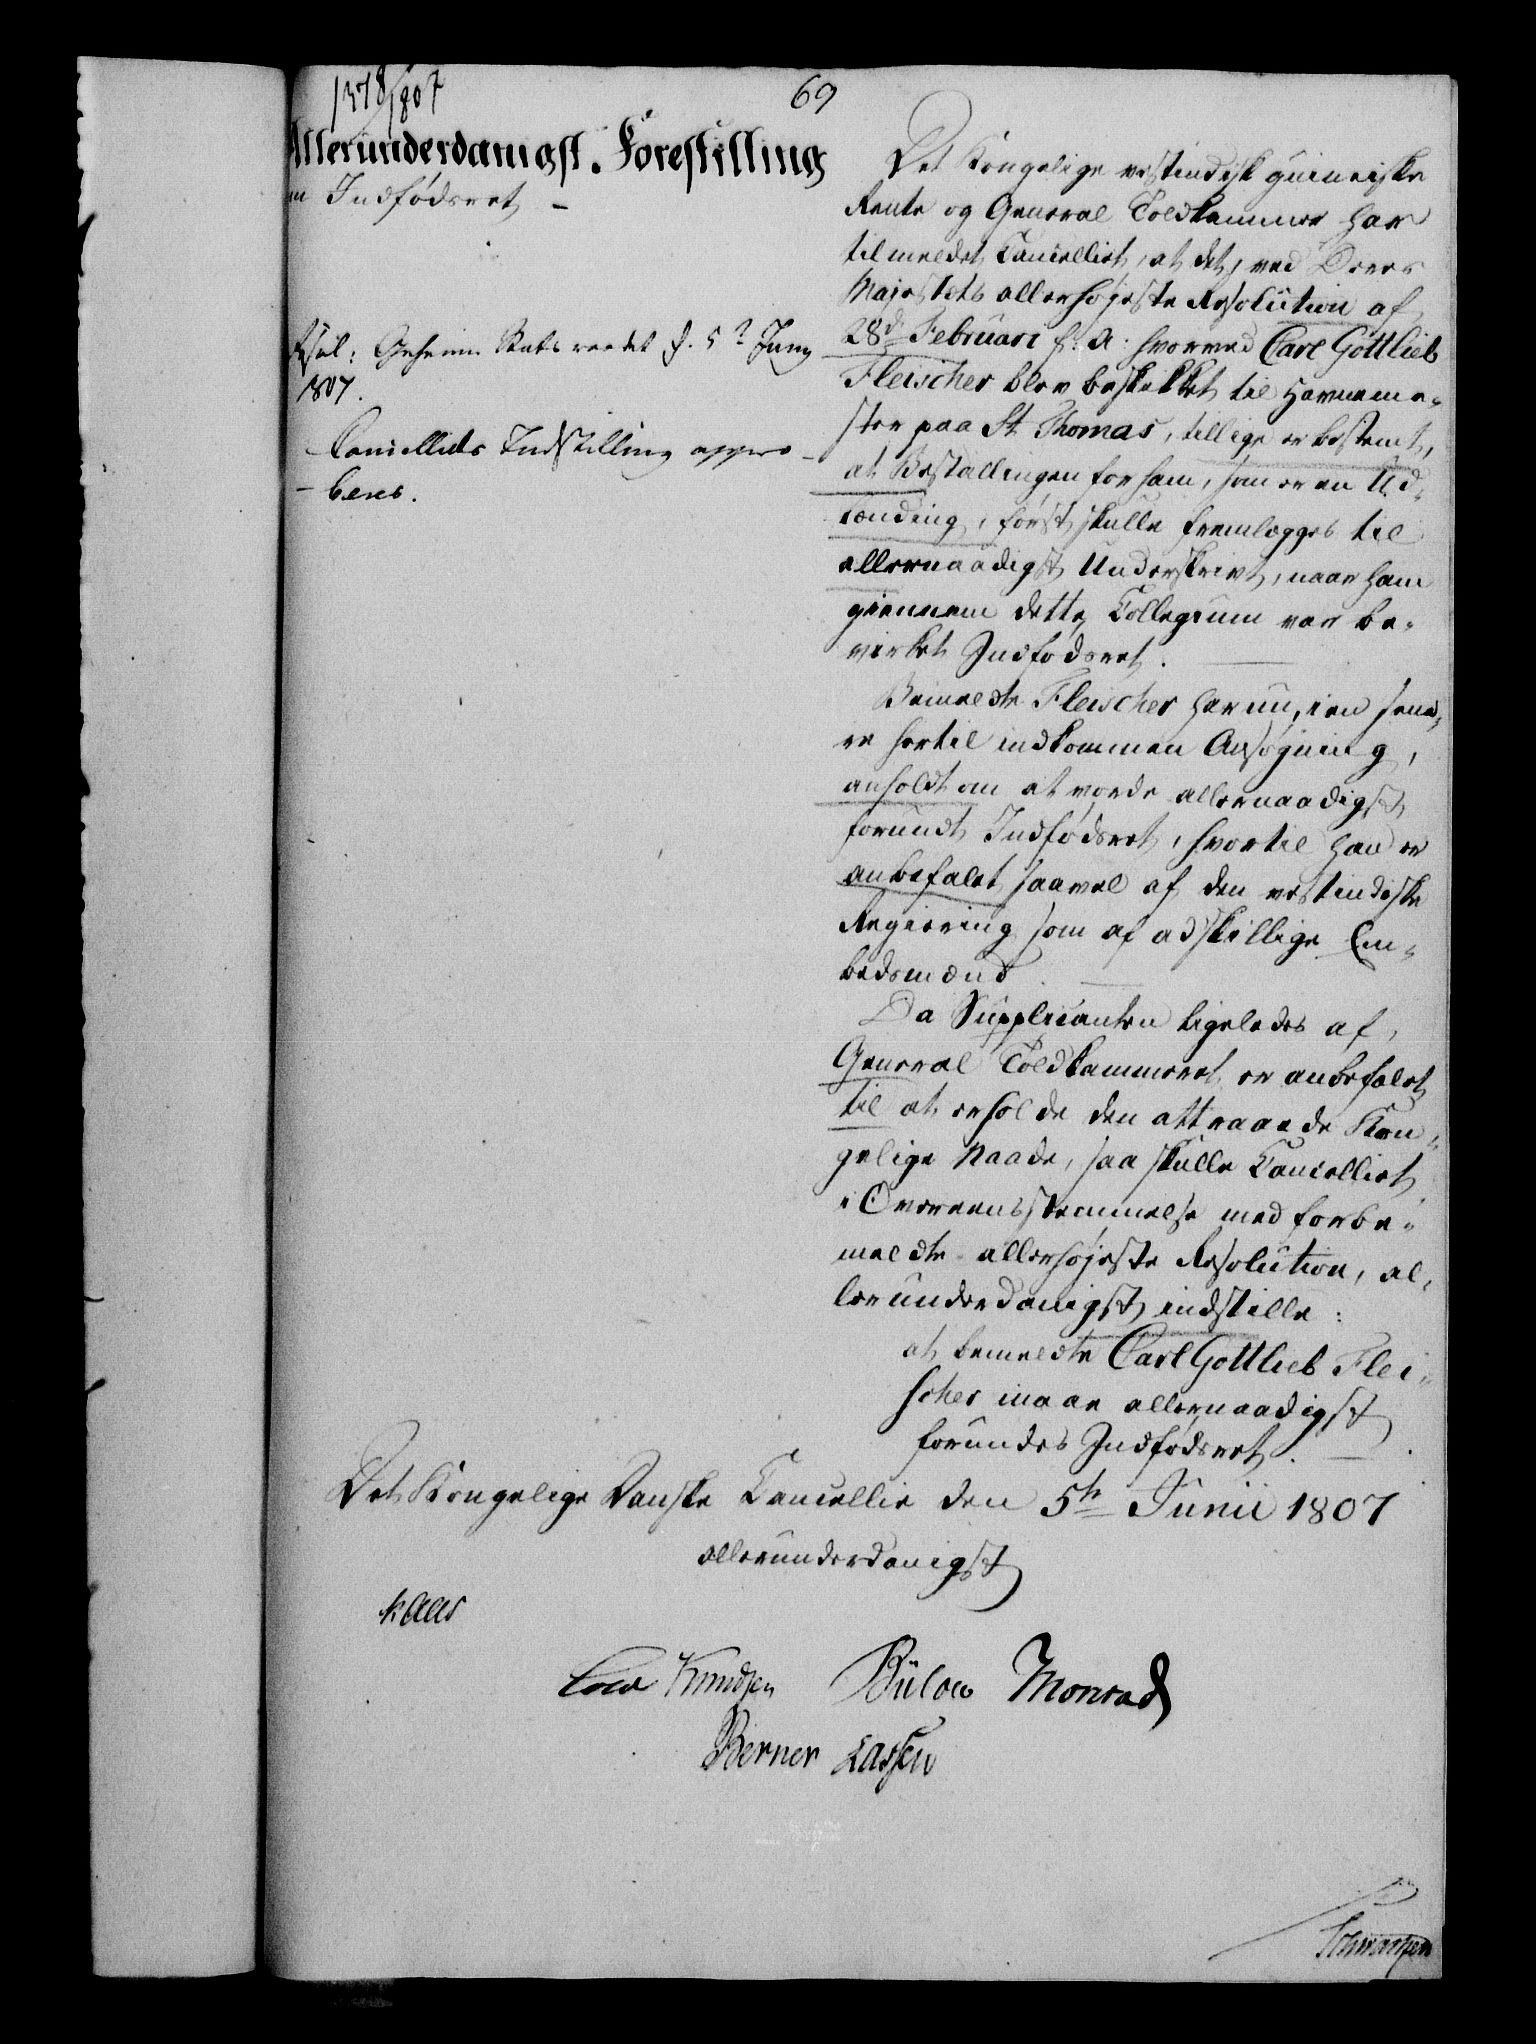 1378/1807
69
Allerunderdanigst. Forestilling
m Indfødsret –
Resol: Geheime Statsraadet d. 5t Juny
1807.
Cancelliets Indstilling appro-
beres.
Det Kongelige vestindisk guineiske
Rente og General Toldkammer har
tilmeldet Cancelliet, at det, ved Deres
Majestæts allerhøjeste Resolution af
28d Februari h: A: hvorved Carl Gottlieb
Fleischer blev beskikket til Havneme-
ster paa St Thomas, tillige er bestemt,
at Bestallingen for ham, som er en Ud-
lænding, først skulle fremlægges til
allernaadigst Underskrivt, naar ham
giennem dette Collegium var be-
virket Indfødsret.
Bemeldte Fleischer har nu, i en sene-
re hertil indkommen Ansøgning,
anholdt om at vorde allernaadigst
forundt Indfødsret, hvortil han er
anbefalet saavel af den vestindiske
Regiering som af adskillige Em-
bedsmænd.
Da Supplicanten ligeledes af
General Toldkammeret er anbefalet
til at erholde den attraaede Kon-
gelige Naade, saa skulle Cancelliet
i Overeensstemmelse med forbe-
meldte allerhøjeste Resolution, al-
lerunderdanigst indstille:
at bemeldte Carl Gottlieb Flei-
scher maae allernaadigst
forundes Indfødsret.
Det Kongelige Danske Cancellie den 5te Junii 1807
allerunderdanigst
Kaas
Cold Knudsen Bülow Monrad
Berner Lassen